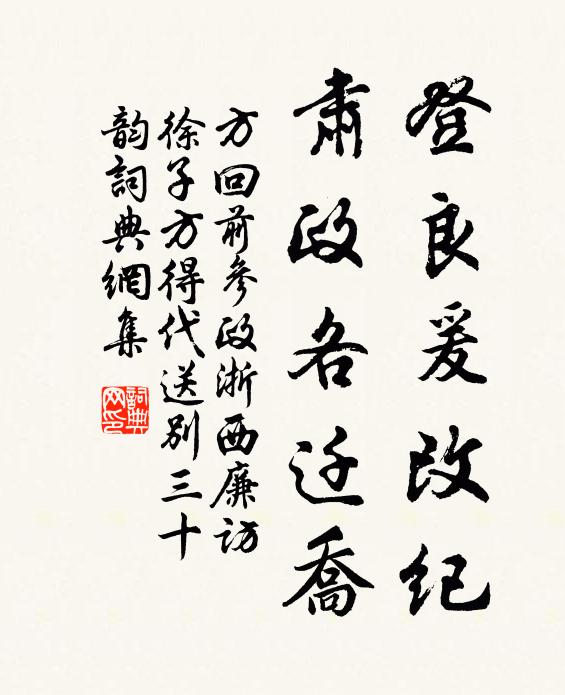 登良爰改纪
肃政各迁喬
方回前參政浙西廉訪
徐子方得代送别三十
韵詞典網集
詞典网印